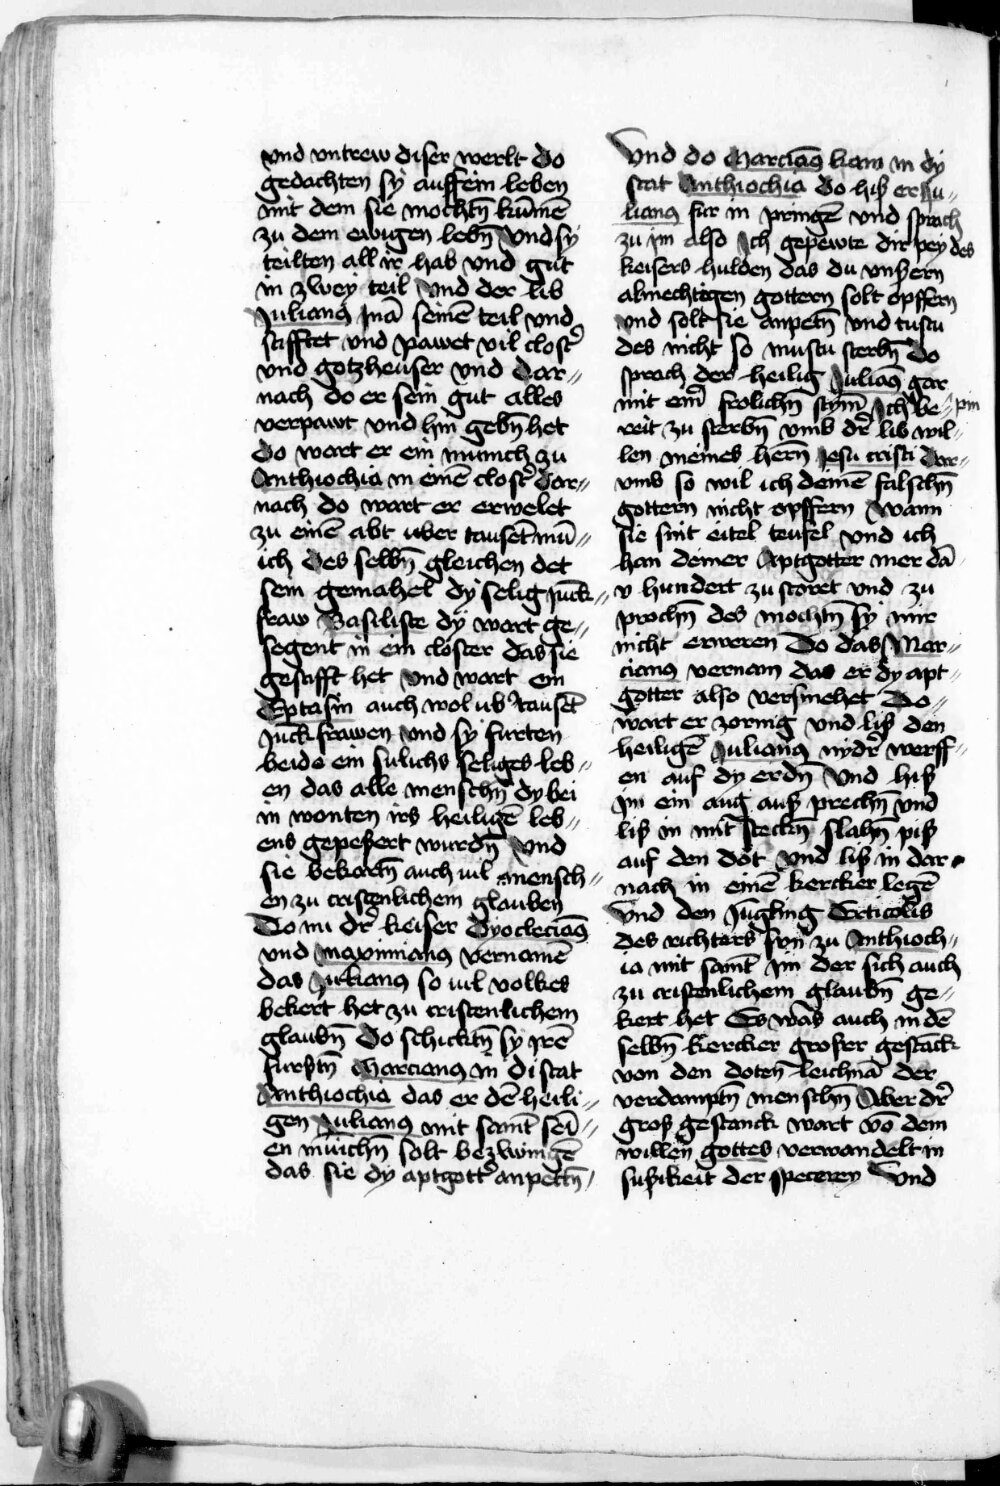 vnd vntrew diser werlt Do
gedachten sy auff ein leben
mit dem sie mochtn̄ kum̄ē
zu dem ewigen lebn̄ Vnd sy
teilten all ir hab vnd gut
in zwey teil Vnd der lib
Julianus nā seinē teil vnd
stifftet vnd pawet vil clost̾
vnd gotzheuser Vnd Dar〃
nach do er sein gut alles
verpawt vnd hin gebn̄ het
do wart er ein munich zu
Anthiochia in einē clost̾ Dar〃
nach do wart er erwelet
zu einē abt vber tausēt mū〃
ich Des selbn̄ gleichen det
sein gemahel dy selig juck〃
fraw Basilisse dy wart ge〃
segent in ein closter das sie
gestifft het Vnd wart ein
Eptasin auch wol vb̾ tausēt
Juckfrawen Vnd sy furten
beide ein sulichs seliges leb〃
en das alle menschn̄ dy bei
in wonten irs heiligē leb〃
ens gepeßert wurdn̄ Vnd
sie bekartn̄ auch vil mensch〃
en zu cristenlichem glauben
Do nu dr̾ keiser Dyoclecianus
vnd Maximianus vernamē
das Julianus so vil volkes
bekert het zu cristenlichem
glaubn̄ Do schicktn̄ sy irē
furstn̄ Marcianus in di stat
Anthiochia das er dē heili〃
gen Julianus mit samt sei〃
en munichn̄ solt bezwingē
das sie dy aptgott̾ anpettn̄
Vnd do Marcianus kam in dy
stat Anthiochia do hiß er Ju〃
lianus fur in pringē vnd sprach
zu im also Ich gepewte dir pey des
keisers hulden das du vnßern
almechtigen gottern solt opffern
vnd solt sie anpetn̄ Vnd tustu
des nicht so mustu sterbn̄ Do
sprach der heilig Julianus gar
mit eim̄ frolichn̄ stym̄ Ich pin be〃
reit zu sterbn̄ vmb dr̾ lib wil〃
len meines hern̄ Jesu cristi Dar〃
vmb so wil ich deinē falschn̄
gottern nicht opffern Wann
sie sint eitel teufel vnd ich
han deiner Aptgotter mer dā
v hundert zu storet vnd zu
prochn̄ des mochtn̄ sy mir
nicht erweren Do das Mar〃
cianus vernam das er dy apt〃
gotter also versmehet Do〃
wart er zornig vnd liß den
heiligē Julianus nydr̾ werff〃
en auf dy erdn̄ Vnd hiß
im ein aug auß prechn̄ vnd
liß in mit stecken slahn̄ piß
auf den dot Vnd liß in dar
nach in einē kercker legē
Vnd den Jūgling Celticolis
des richters sun̄ zu Anthioch〃
ia mit samt im der sich auch
zu cristenlichem glaubn̄ ge〃
kert het Es was auch in dē
selbn̄ kercker großer gestack
von den doten leichnā der
verdamptn̄ menschn̄ Aber dr̾
groß gestanck wart vō dem
willen gottes verwandelt in
sußikeit der specerey Vnd